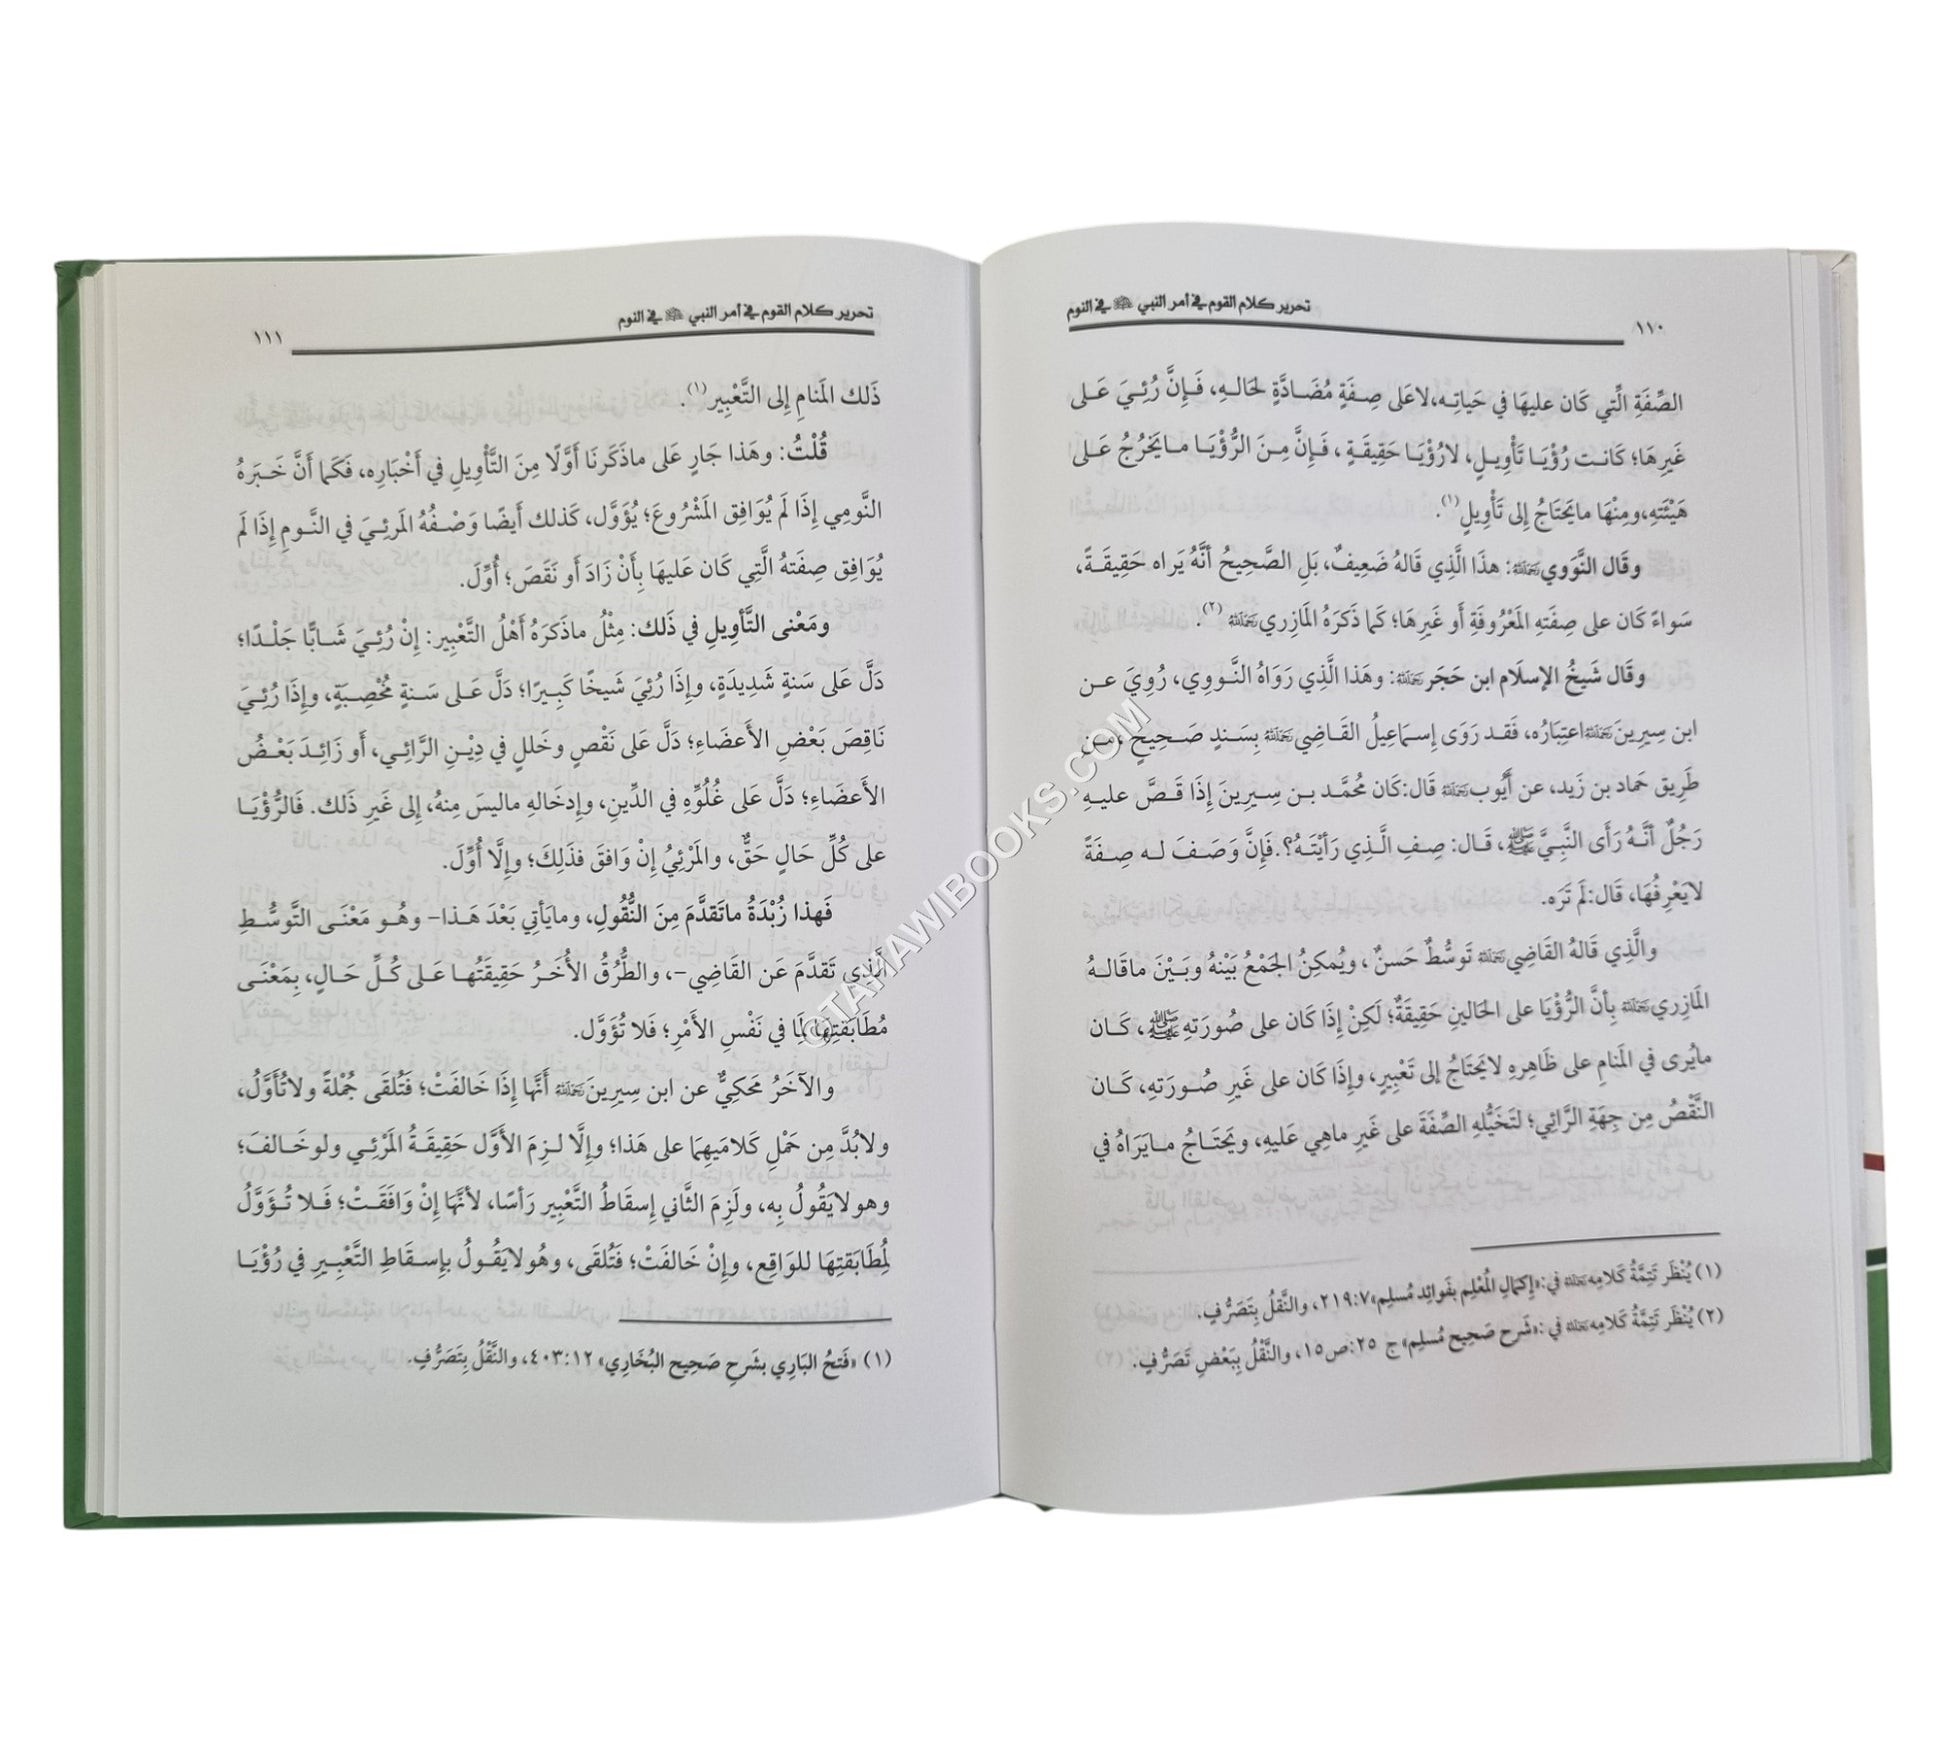 تحرير كلام القوم في أمر النبي ﷺ في النوم
١١٠
الصِّفَةِ الَّتي كَان عليهَا في حَياتِـه،لاعَلى صِـفَةٍ مُضَـادَّةٍ لحَالـهِ، فَـإنَّ رُئِـيَ عَـلى
غَيرِهَا؛ كَانـت رُؤْيَـا تَأْوِيـلٍ، لارُؤْيَـا حَقِيقَـةٍ ، فَـإنَّ مِـنَ الـرُّؤْيَـا مـايَخرُجُ عَـلى
هَيْئَتهِ،ومِنْهَا مايَحتَاجُ إلى تَأْوِيلٍ(١).
وقَال النَّووي رَحِمَهُ اللَّهُ: هذَا الَّذِي قَالهُ ضَعِيفٌ، بَلِ الصَّحِيحُ أنَّهُ يَراه حَقِيقَـةً،
سَواءً كَان على صِفَتهِ المَعْرُوفَةِ أَو غَيرِهَا؛ كَمَا ذَكَرَهُ المَازِري رَحِمَهُ اللَّهُ (٢).
وقَال شَيخُ الإسلَام ابن حَجَر رَحِمَهُ اللَّهُ: وهَذا الَّذِي رَوَاهُ النَّـووِي، رُوِيَ عـن
ابن سِيرِينَ رَحِمَهُ اللَّهُ اعتِبَارُه، فَقـد رَوَى إسـمَاعِيلُ القَـاضِي رَحِمَهُ اللَّهُ بِسَـندٍ صَـحِيحٍ ،مـن
طَرِيق حمَاد بن زَيد، عن أَيُّوب رَحِمَهُ اللَّهُ قَال:كَان مُحَمَّـد بـن سِـيرِينَ إذَا قَـصَّ عليـهِ
رَجُلٌ أنَّـهُ رَأَى النَّبِيَّ ﷺ، قَـال: صِـفِ الَّـذِي رَأَيْتَـهُ؟.فَإنَّ وَصَـفَ لـه صِـفَةً
لايَعْرِفُهَا، قَال:لَم تَرَه.
والَّذِي قَالهُ القَاضِي رَحِمَهُ اللَّهُ تَوسُّطٌ حَسنٌ ، ويُمكِنُ الجَمْعُ بَيْنهُ وبَـيْنَ ماقَالـهُ
المَازِري رَحِمَهُ اللَّهُ بِأنَّ الرُّؤْيَا على الحَالينِ حَقِيقَةٌ؛ لَكِنْ إذَا كَان على صُورَتهِ ﷺ، كَـان
مايُرى في المَنامِ على ظَاهِرهِ لايَحتَاجُ إلى تَعْبِيرٍ، وإذَا كَان على غَيرِ صُـورَتهِ، كَـان
النَّقْصُ مِن جِهَةِ الرَّائِي؛ لتَخَيُّلهِ الصِّفَةَ على غَيرِ ماهِي عَليهِ، ويَحتَـاجُ مـايَرَاهُ في
(١) يُنْظَر تَتِمَّةُ كَلامِه رَحِمَهُ اللَّهُ في: «إكمَالِ المُعْلِم بفَوائِد مُسلِم» ٢١٩:٧، والنَّقلُ بِتَصَرُّفٍ.
(٢) يُنْظَر تَتِمَّةُ كَلامِه رَحِمَهُ اللَّهُ في :«شَرح صَحِيح مُسلِم» ج ٢٥:ص١٥، والنَّقْلُ بِبَعْضِ تَصَرُّفٍ.
تحرير كلام القوم في أمر النبي ﷺ في النوم
١١١
ذَلك المَنامِ إلى التَّعْبِير(١).
قُلْتُ: وهَذا جَارٍ عَلى ماذَكَرنَا أَوَّلًا مِنَ التَّأْوِيلِ في أَخْبَارِه، فَكَما أنَّ خَـبَرهُ
النَّومِي إذَا لَم يُوَافِق المَشْرُوعَ؛ يُؤوَّل، كَذلك أَيضًا وَصْـفُهُ المَرئِـيَ في النَّـومِ إذَا لَم
يُوَافِق صِفَتَهُ الَّتِي كَان عَليهَا بِأَنْ زَادَ أَو نَقَصَ؛ أُوِّلَ.
ومَعْنى التَّأوِيلِ في ذَلك: مِثْلُ ماذَكَرَهُ أَهْلُ التَّعْبِير: إنْ رُئِـيَ شَـابًّا جَلْـدًا؛
دَلَّ عَلى سَنةٍ شَدِيدَةٍ، وإذَا رُئِيَ شَيخًا كَبِـيرًا؛ دَلَّ عَـلى سَـنةٍ مُخْصِـبةٍ، وإذَا رُئِـيَ
نَاقِصَ بَعْضِ الأَعضَاءِ؛ دَلَّ عَلى نَقْصٍ وخَللٍ في دِيْنِ الرَّائِي، أَو زَائِـدَ بَعْـضُ
الأَعضَاءِ؛ دَلَّ عَلى غُلُوِّهِ في الدِّينِ، وإدخَالهِ ماليسَ مِنهُ، إلى غَيرِ ذَلك. فَالرُّؤْيَـا
على كُلِّ حَالٍ حَقٌّ، والمَرْئِيُّ إنْ وَافقَ فذَلِكَ؛ وإلَّا أُوِّلَ.
فَهذا زُبْدَةُ ماتَقدَّمَ مِنَ النُّقُولِ، ومايَأتي بَعْدَ هَـذا– وهُـو مَعْنَـى التَّوسُّـطِ
الَّذِي تَقدَّمَ عَن القَاضِي–، والطُّرُقُ الأُخَرُ حَقِيقَتُهـا عَـلى كُـلِّ حَـالٍ، بِمَعْنَـى
مُطَابَقتِهَا لمَا في نَفْسِ الأَمْرِ؛ فَلا تُؤوَّل.
والآخَرُ مَحَكِيٌّ عن ابن سِيرِينَ رَحِمَهُ اللَّهُ أنَّها إذَا خَالفَتْ؛ فَتُلقَى جُملةً ولاتُأوَّلُ،
ولابُدَّ مِن حَمْلِ كَلامَيهِمَا على هَذا؛ وإلَّا لـزِمَ الأَوَّل حَقِيقَـةُ المَرْئِـي ولو خَـالفَ؛
وهو لايَقُولُ بِه، ولَزِمَ الثَّاني إسقَاطُ التَّعْبِير رَأسًا، لأنَّهَا إنْ وَافَقَـتْ؛ فَـلا تُـؤوَّلُ
لمُطَابَقتِهَا للوَاقِع، وإنْ خَالفَتْ؛ فَتُلقَى، وهُو لايَقُـولُ بإسـقَاطِ التَّعْبِـيرِ في رُؤْيَـا
(١) «فَتحُ البَارِي بشَرحِ صَحِيح البُخَارِي» ٤٠٣:١٢، والنَّقْلُ بِتَصَرُّفٍ.
©TAHAWIBOOKS.COM